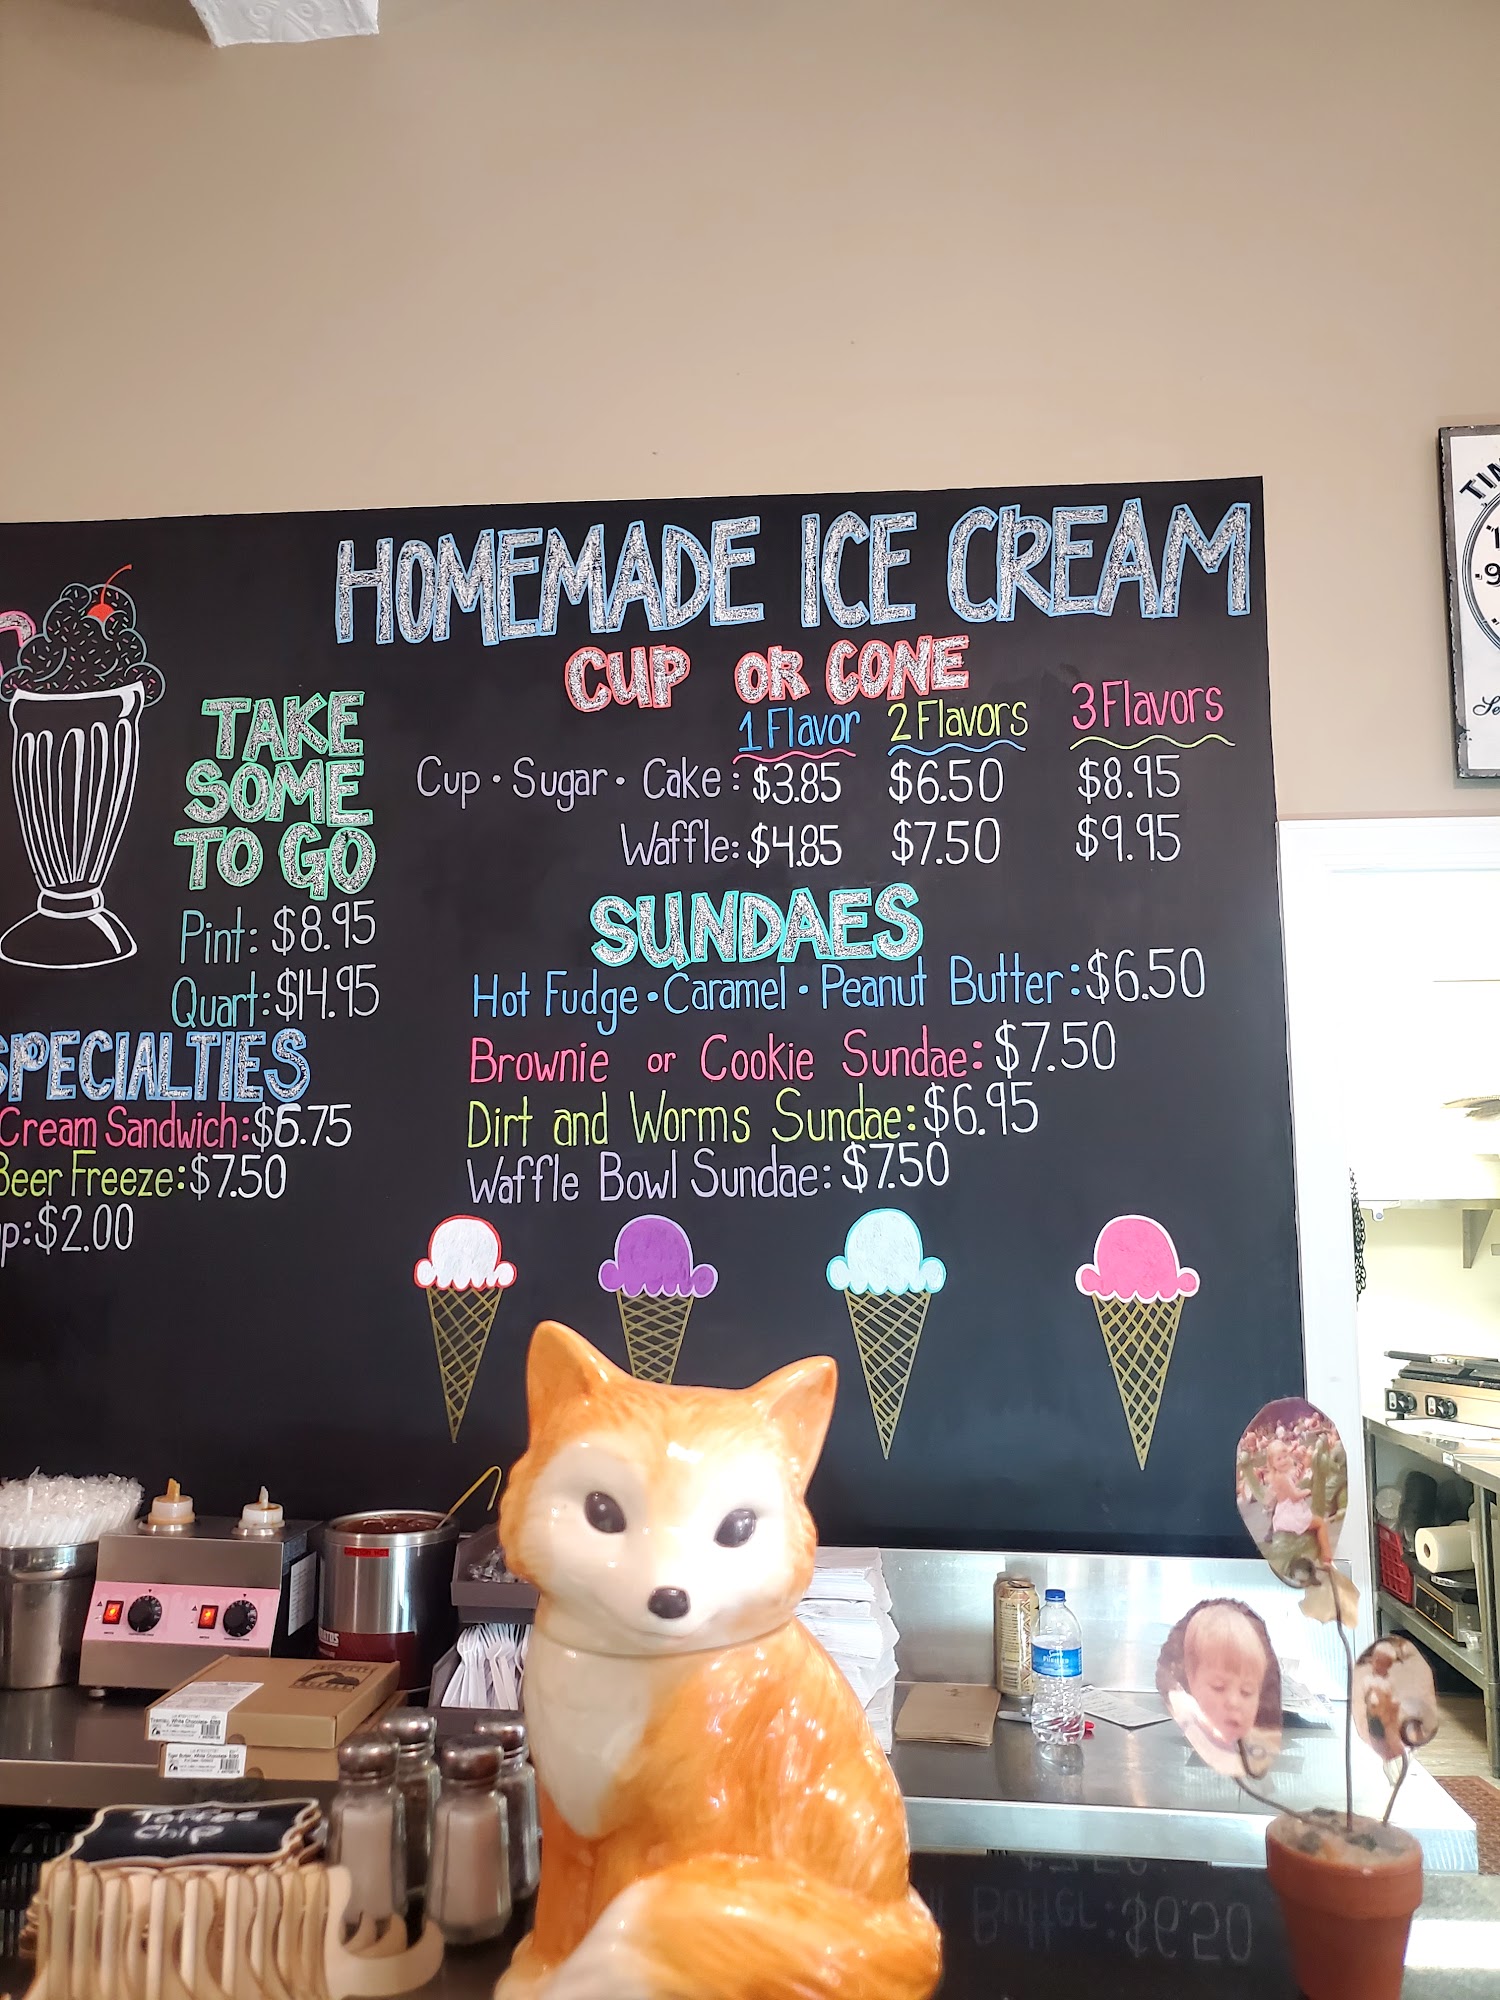 HOMEMADE ICE CREAM
CUP OR CONE
1 Flavor 2 Flavors 3 Flavors
Cup · Sugar · Cake: $3.85 $6.50 $8.95
Waffle: $4.85 $7.50 $9.95
SUNDAES
Hot Fudge · Caramel · Peanut Butter: $6.50
Brownie or Cookie Sundae: $7.50
Dirt and Worms Sundae: $6.95
Waffle Bowl Sundae: $7.50
TAKE
SOME
TO GO
Pint: $8.95
Quart: $14.95
SPECIALTIES
Cream Sandwich: $6.75
Beer Freeze: $7.50
p: $2.00
Toffee
Chip